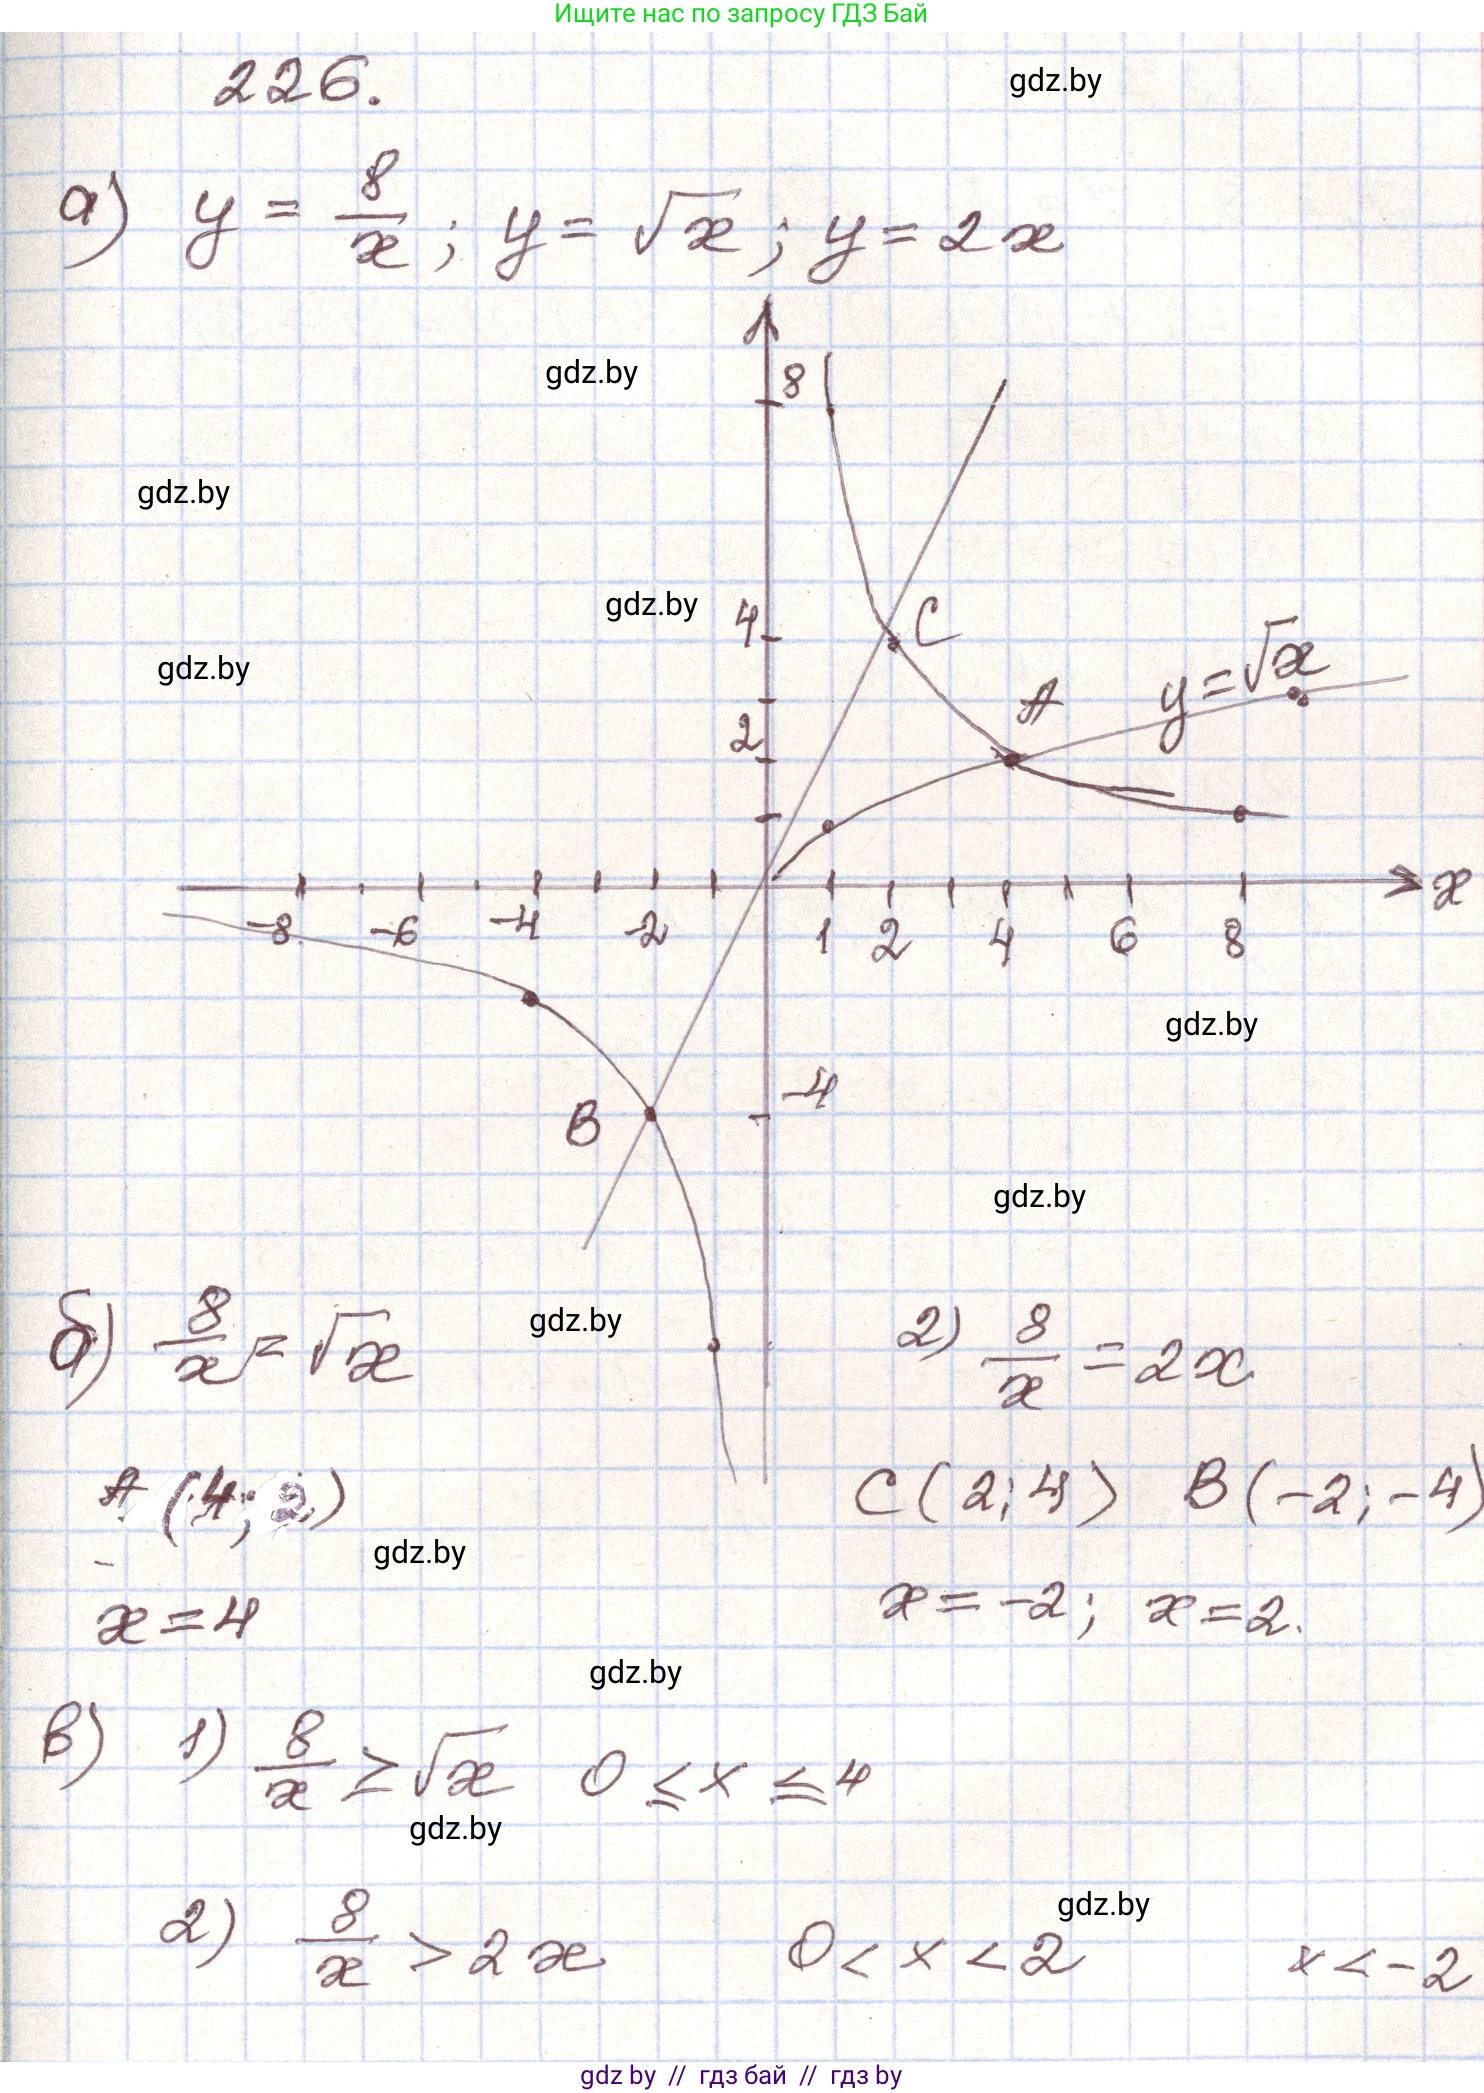 Ищите нас по запросу ГДЗ Бай
226.
gdz.by
а) y = 8/x ; y = √x ; y = 2x
8
gdz.by
gdz.by
gdz.by
4 C
gdz.by
y = √x
A
2
x
-8 -6 -4 -2 1 2 4 6 8
gdz.by
-4
B
gdz.by
б) 8/x = √x
gdz.by
2) 8/x = 2x
A (4; 2)
C (2; 4) B (-2; -4)
gdz.by
x = 4
x = -2; x = 2.
gdz.by
в) 1) 8/x ≥ √x 0 ≤ x ≤ 4
gdz.by
gdz.by
2) 8/x > 2x 0 < x < 2 x < -2
gdz.by // гдз бай // гдз by